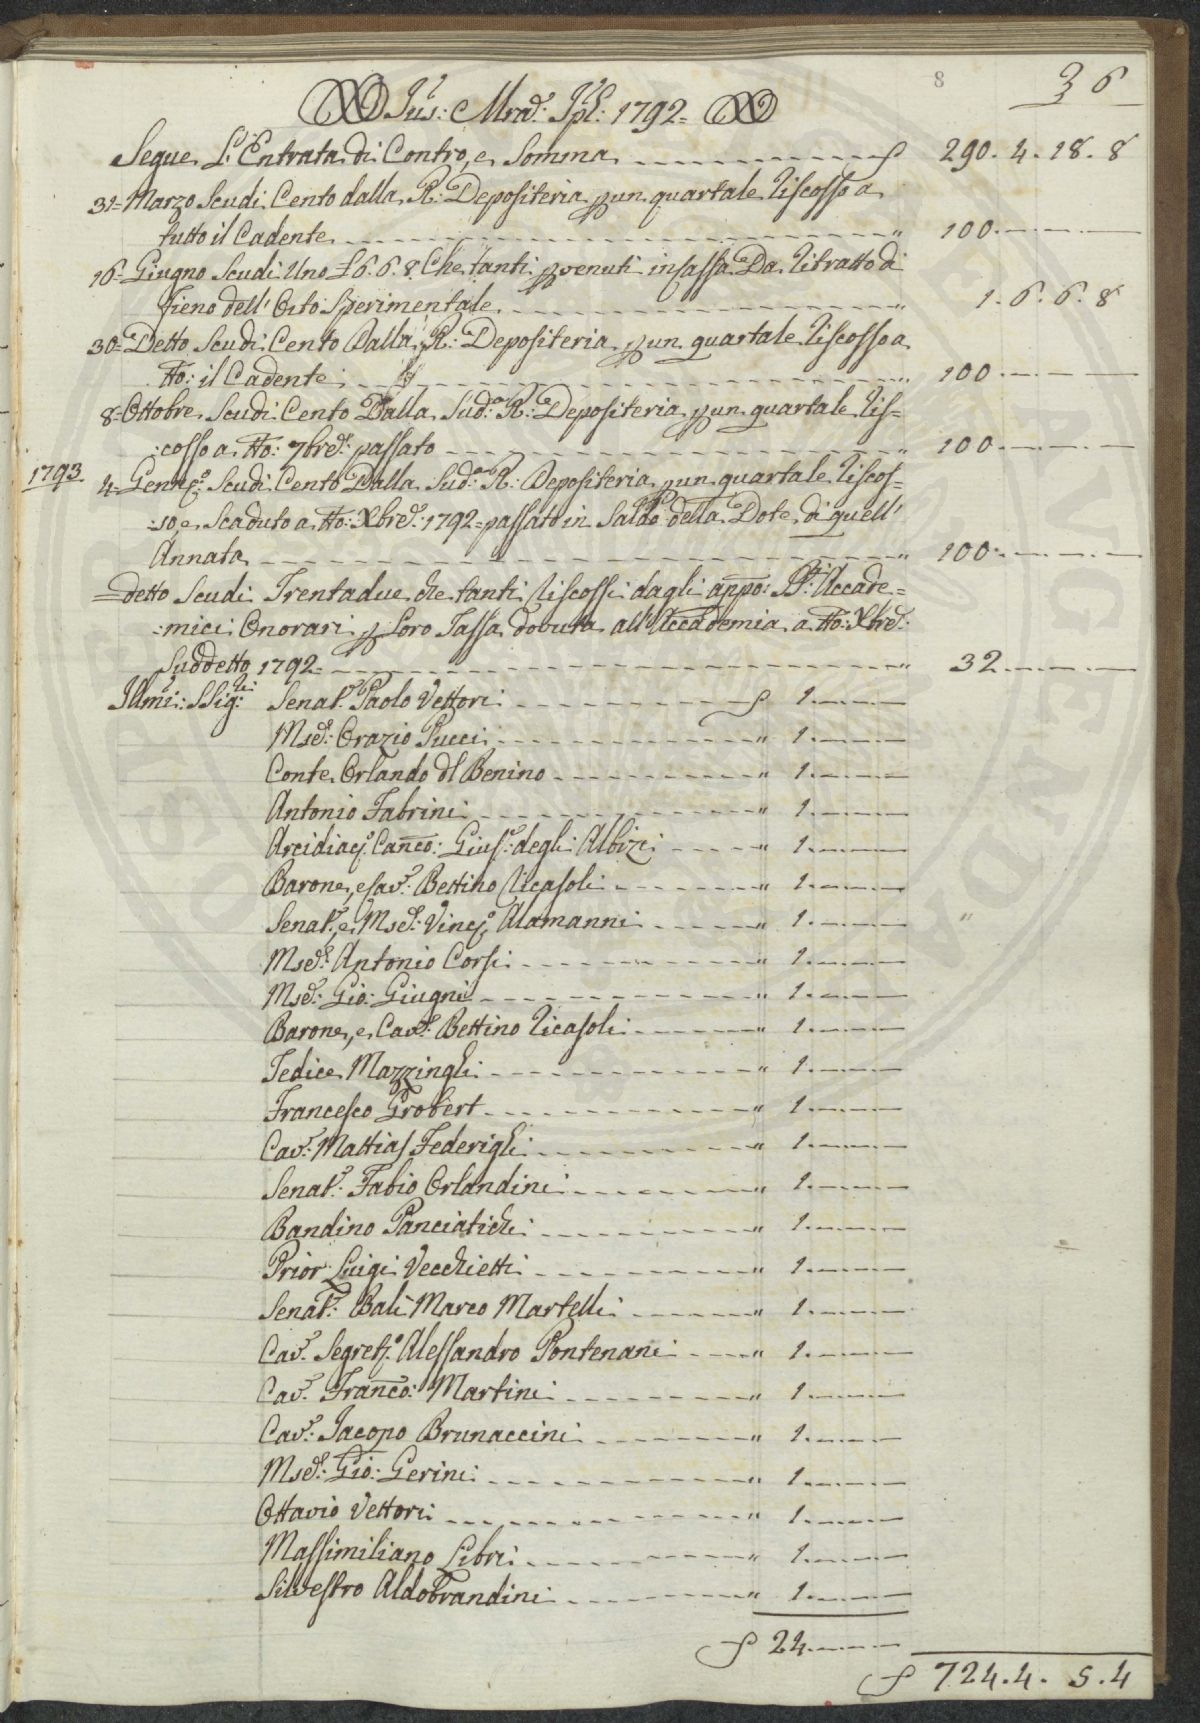 8
36
Jus: Mrad: Jpl: 1792=
Segue L'Entrata di Contro, e Somma ƒ 290. 4. 18. 8
31= Marzo Scudi Cento dalla R: Depositeria p un quartale riscosso a
tutto il Cadente " 100
16= Giugno Scudi Uno £ 6. 6. 8 Che tanti pvenuti in Cassa Da ritratto di
Fieno dell' Orto Sperimentale " 1. 6. 6. 8
30= Detto Scudi Cento Dalla R: Depositeria p un quartale riscosso a
tto: il Cadente " 100
8= Ottobre Scudi Cento Dalla Sud:a R: Depositeria p un quartale ris=
:cosso a tto: 7bre passato " 100
1793.
4= Genn:o Scudi Cento Dalla Sud:a R: Depositeria p un quartale riscos=
:so, e scaduto a tto: Xbre: 1792= passato in Saldo della Dote di quell'
Annata " 100
= detto Scudi Trentadue che tanti riscossi dagli appo: SS:ri Accade=
:mici Onorari p Loro Tassa dovuta all'Accademia a tto: Xbre:
Suddetto 1792= " 32
Illmi: SSig:ri Senat:e Paolo Vettori ƒ 1
Mse: Orazio Pucci " 1
Conte Orlando dl Benino " 1
Antonio Fabrini " 1
Arcidiac:o Canco: Gius:e degli Albizi " 1
Barone, e Cav:e Bettino Ricasoli " 1
Senat:e, e Mse: Vinc:o Alamanni " 1
Mse: Antonio Corsi " 1
Mse: Gio: Giugni " 1
Barone, e Cav:e Bettino Ricasoli " 1
Tedice Mazzinghi " 1
Francesco Grobert " 1
Cav:e Mattias Federighi " 1
Senat:e Fabio Orlandini " 1
Bandino Panciatichi " 1
Prior Luigi Vecchietti " 1
Senat:e Balì Marco Martelli " 1
Cav:e Segret:o Alessandro Pontenani " 1
Cav:e Franco: Martini " 1
Cav:e Jacopo Brunaccini " 1
Mse: Gio: Gerini " 1
Ottavio Vettori " 1
Massimiliano Libri " 1
Silvestro Aldobrandini " 1
ƒ 24
ƒ 724. 4. 5. 4